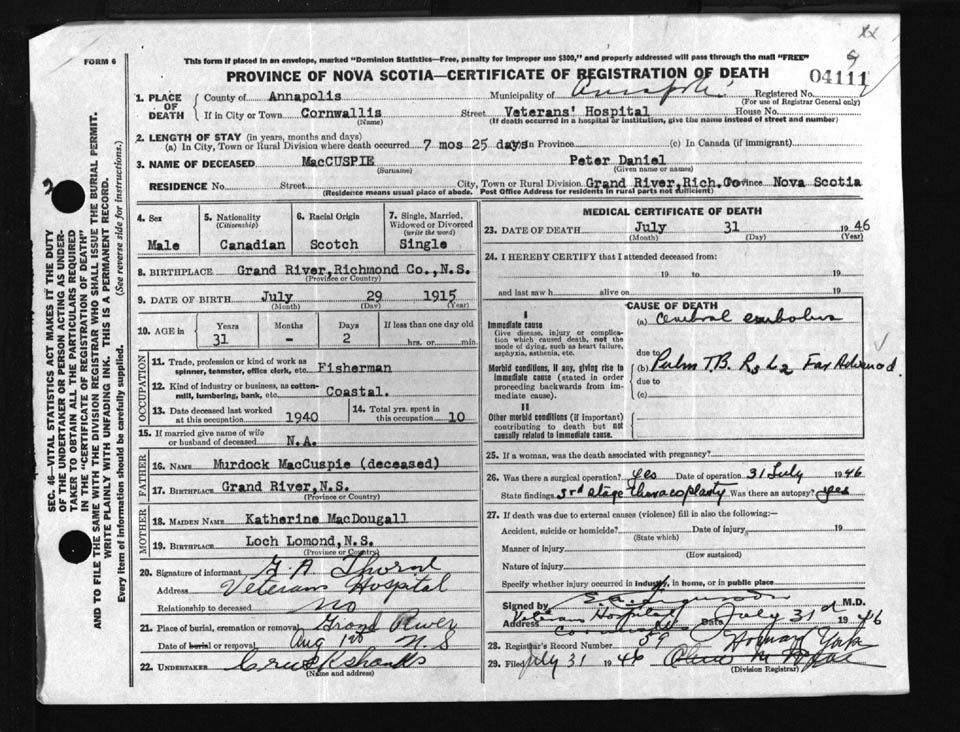 FORM 6
This form if placed in an envelope, marked "Dominion Statistics—Free, penalty for improper use $300," and properly addressed will pass through the mail "FREE"
PROVINCE OF NOVA SCOTIA—CERTIFICATE OF REGISTRATION OF DEATH
04111
1. PLACE OF DEATH
County of Annapolis Municipality of Annapolis Registered No.
(For use of Registrar General only)
If in City or Town Cornwallis Street Veterans' Hospital House No.
(Name) (If death occurred in a hospital or institution, give the name instead of street and number)
2. LENGTH OF STAY (in years, months and days)
(a) In City, Town or Rural Division where death occurred 7 mos 25 days In Province (c) In Canada (if immigrant)
3. NAME OF DECEASED MacCUSPIE Peter Daniel
(Surname) (Given name or names)
RESIDENCE No. Street City, Town or Rural Division Grand River, Rich. Co Province Nova Scotia
(Residence means usual place of abode. Post Office Address for residents in rural parts not sufficient)
4. Sex
Male
5. Nationality
(Citizenship)
Canadian
6. Racial Origin
Scotch
7. Single, Married, Widowed or Divorced
(write the word)
Single
8. BIRTHPLACE Grand River, Richmond Co., N.S.
(Province or Country)
9. DATE OF BIRTH July 29 1915
(Month) (Day) (Year)
10. AGE in Years Months Days If less than one day old
31 - 2 hrs. or min.
OCCUPATION
11. Trade, profession or kind of work as spinner, teamster, office clerk, etc. Fisherman
12. Kind of industry or business, as cotton-mill, lumbering, bank, etc. Coastal.
13. Date deceased last worked at this occupation 1940
14. Total yrs. spent in this occupation 10
15. If married give name of wife or husband of deceased N.A.
FATHER
16. NAME Murdock MacCuspie (deceased)
17. BIRTHPLACE Grand River, N.S.
(Province or Country)
MOTHER
18. MAIDEN NAME Katherine MacDougall
19. BIRTHPLACE Loch Lomond, N.S.
(Province or Country)
20. Signature of informant G A Thorne
Address Veterans Hospital
Relationship to deceased no
21. Place of burial, cremation or removal Grand River
Date of burial or removal Aug 1st N.S
22. UNDERTAKER Cruikshanks
(Name and address)
MEDICAL CERTIFICATE OF DEATH
23. DATE OF DEATH July 31 1946
(Month) (Day) (Year)
24. I HEREBY CERTIFY that I attended deceased from:
19 to 19
and last saw h alive on 19
I
Immediate cause
Give disease, injury or complication which caused death, not the mode of dying, such as heart failure, asphyxia, asthenia, etc.
Morbid conditions, if any, giving rise to immediate cause (stated in order proceeding backwards from immediate cause).
II
Other morbid conditions (if important) contributing to death but not causally related to immediate cause.
CAUSE OF DEATH
(a) Cerebral embolus
due to
(b) Pulm T.B. R3 L2 Far Advanced.
due to
(c)
25. If a woman, was the death associated with pregnancy?
26. Was there a surgical operation? yes Date of operation 31 July 1946
State findings 3rd stage thoracoplasty Was there an autopsy? yes
27. If death was due to external causes (violence) fill in also the following:—
Accident, suicide or homicide? Date of injury 19
(State which)
Manner of injury
(How sustained)
Nature of injury
Specify whether injury occurred in industry, in home, or in public place
Signed by M.D.
Address Veterans Hospital Date July 31st 1946
Cornwallis
28. Registrar's Record Number 89
29. Filed July 31 1946
(Division Registrar)
SEC. 46—VITAL STATISTICS ACT MAKES IT THE DUTY OF THE UNDERTAKER OR PERSON ACTING AS UNDERTAKER TO OBTAIN ALL THE PARTICULARS REQUIRED IN THE "CERTIFICATE OF REGISTRATION OF DEATH" AND TO FILE THE SAME WITH THE DIVISION REGISTRAR WHO SHALL ISSUE THE BURIAL PERMIT.
WRITE PLAINLY WITH UNFADING INK. THIS IS A PERMANENT RECORD.
Every item of information should be carefully supplied. (See reverse side for instructions.)